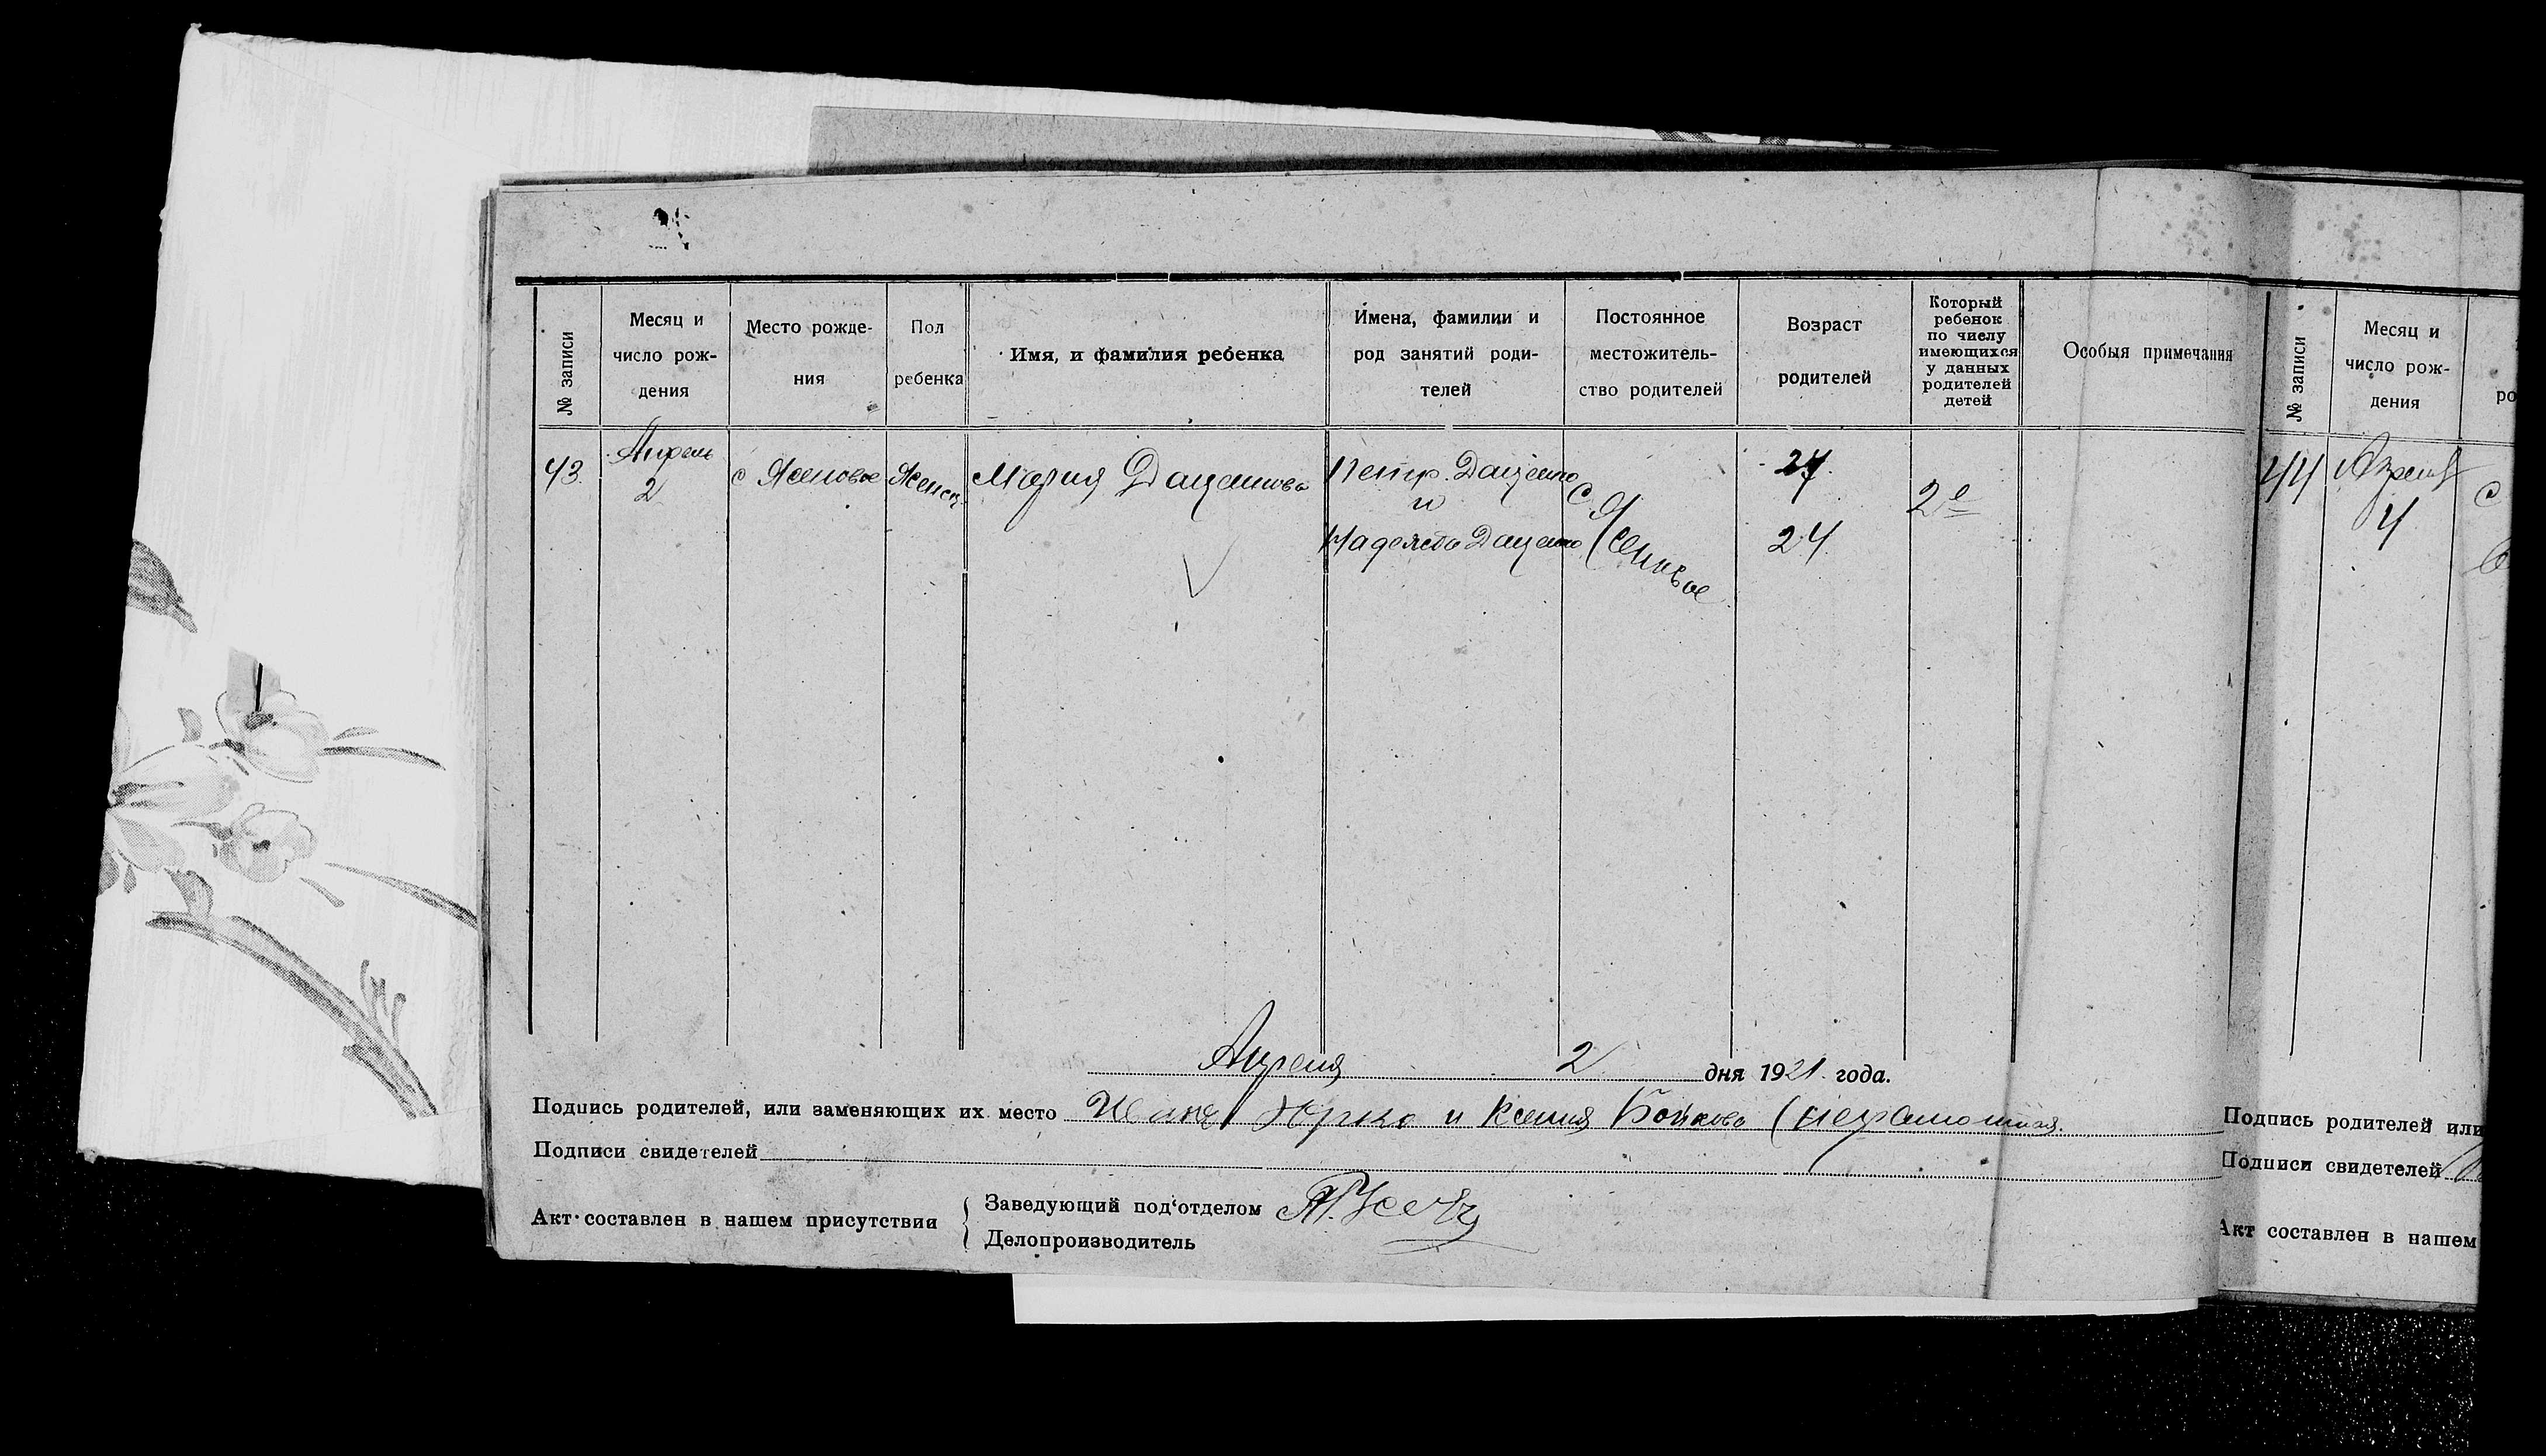 № записи
Месяц и
число рож-
дения
Место рожде-
ния
Пол
ребенка
Имя, и фамилия ребенка
Имена, фамилии и
род занятий роди-
телей
Постоянное
местожитель-
ство родителей
Возраст
родителей
Который
ребенок
по числу
имеющихся
у данных
родителей
детей
Особыя примечания
43.
Апрель
2
с Ясеновое
Женск.
Мария Даценкова
Петр. Даценко
и
Надежда Даценко
с. Ясеновое
27.
24.
2е
Апреля 2 дня 1921 года.
Подпись родителей, или заменяющих их место Иванъ Юрко и Ксения Бойкова (неграмотная.
Подписи свидетелей
Акт составлен в нашем присутствии
Заведующий под'отделом
Делопроизводитель
№ записи
Месяц и
число рож-
дения
ро
44
4
с
Подпись родителей или
Подписи свидетелей
Акт составлен в нашем